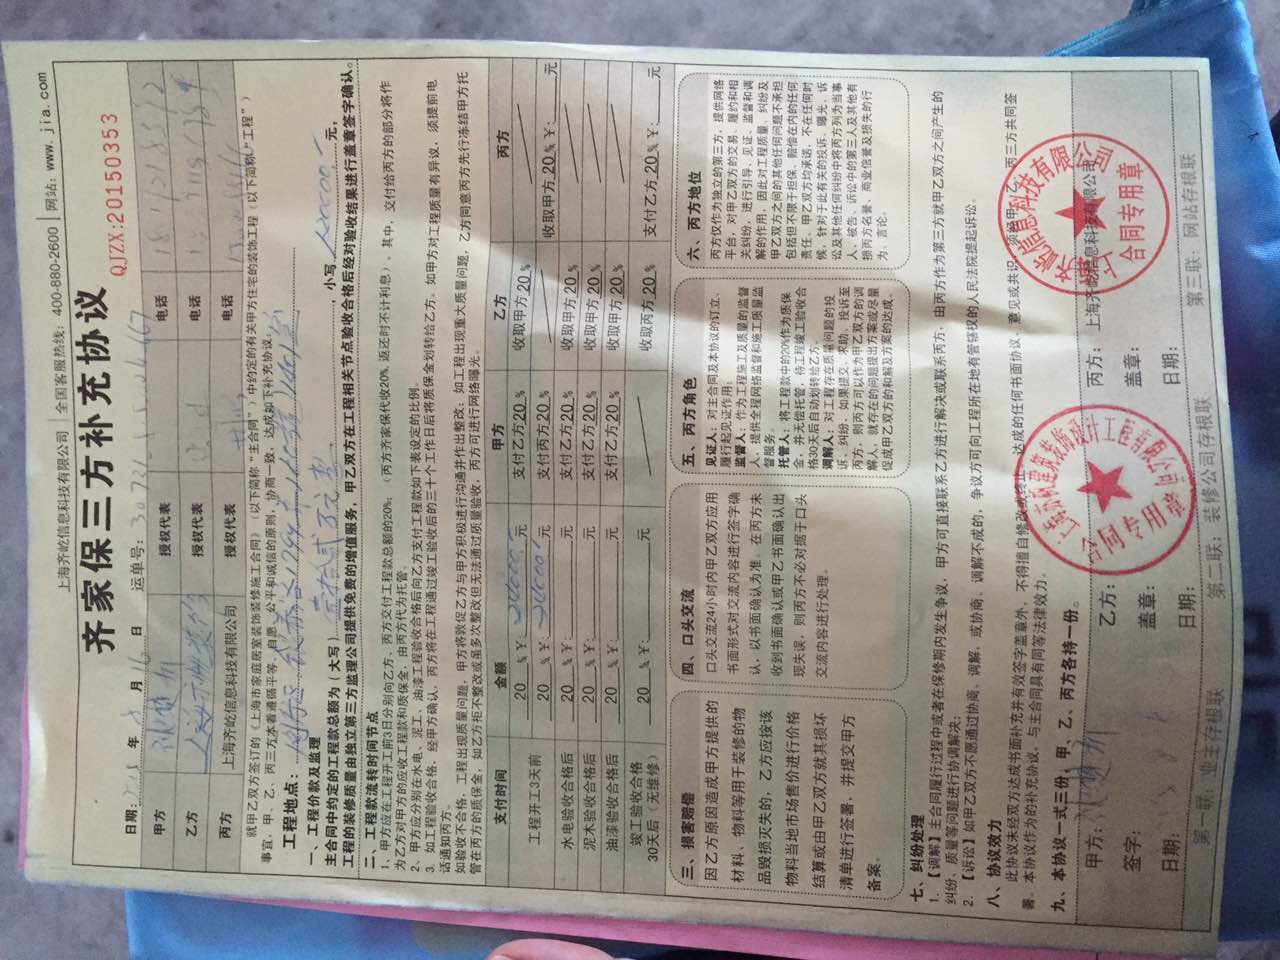 上海齐屹信息科技有限公司 | 全国客服热线：400-880-2600 | 网站：www.jia.com
齐家保三方补充协议
QJZX:20150353
日期： 年 8 月 16 日 运单号：
甲方 授权代表 电话
乙方 授权代表 电话
丙方 上海齐屹信息科技有限公司 授权代表 电话
就甲乙双方签订的《上海市家庭居室装饰装修施工合同》（以下简称“主合同”）中约定的有关甲方住宅的装饰工程（以下简称“工程”）
事宜，甲、乙、丙三方本着遵循平等、自愿、公平和诚信的原则，协商一致，达成如下补充协议：
工程地点：
一、工程价款及监理
主合同中约定的工程款总额为（大写） ，小写 元，
工程的装修质量由独立第三方监理公司提供免费的增值服务，甲乙双方在工程相关节点验收合格后经对验收结果进行盖章签字确认。
二、工程款流转时间节点
1、甲方应在工程开工前3日分别向乙方、丙方交付工程款总额的20%；（丙方齐家保代收20%，返还时不计利息）、其中，交付给丙方的部分将作
为乙方对甲方的应收工程款和质保金，由丙方代为托管。
2、甲方应分别在水电、泥工、油漆工程验收合格后向乙方支付工程款如下表设定的比例。
3、如工程验收合格，经甲方确认，丙方将在工程通过竣工验收后的三个工作日后将质保金划转给乙方、如甲方对工程质量有异议，须提前电
话通知丙方。
如验收不合格，工程出现质量问题，甲方将敦促乙方与甲方积极进行沟通并作出整改；如工程出现重大质量问题，乙方同意丙方先行冻结甲方托
管在丙方的质保金，如乙方拒不整改或虽多次整改但无法通过质量验收，丙方可进行网络曝光。
支付时间 金额 甲方 乙方 丙方
工程开工3天前 20 %￥：20000 元 支付乙方20% 收取甲方20%
20 %￥：20000 元 支付丙方20% 收取甲方20%￥： 元
水电验收合格后 20 %￥： 元 支付乙方20% 收取甲方20%
泥木验收合格后 20 %￥： 元 支付乙方20% 收取甲方20%
油漆验收合格后 20 %￥： 元 支付乙方20% 收取甲方20%
竣工验收合格
30天后（无维修） 20 %￥： 元 收取丙方20% 支付乙方20%￥： 元
三、损害赔偿
因乙方原因造成甲方提供的
材料、物料等用于装修的物
品毁损灭失的，乙方应按该
物料当地市场售价进行价格
结算或由甲乙双方就其损坏
清单进行签署，并提交甲方
备案。
四、口头交流
口头交流24小时内甲乙双方应用
书面形式对交流内容进行签字确
认，以书面确认为准。在丙方未
收到书面确认或甲乙书面确认出
现失误，则丙方不必对据于口头
交流内容进行处理。
五、丙方角色
见证人：对主合同及本协议的订立、
履行起见证作用；
监督人：作为工程施工及质量的监督
人，提供全程网络监督和施工质量监
督服务。
托管人：将工程款中的20%作为质保
金，并无偿托管，待工程竣工验收合
格30天后自动划转给乙方。
调解人：对工程存在质量问题的投
诉、纠纷，如果提交、求助、投诉至
丙方，则丙方可以作为甲乙双方的调
解人，就存在的问题提出方案或尽量
促成甲乙双方的和解及方案的达成。
六、丙方地位
丙方仅作为独立的第三方，提供网络
平台，对甲乙双方的交易、履约和相
关纠纷，进行引导、见证、监督和调
解的作用，因此对工程质量、纠纷及
甲乙双方之间的其他任何问题不承担
包括但不限于担保、赔偿在内的任何
责任、甲乙双方均承诺，不在任何时
候，针对于此有关的投诉、曝光、诉
讼及其他任何纠纷中将丙方列为当事
人、被告、诉讼中的第三人及其他有
损丙方名誉、商业信誉及损失的行
为、言论。
七、纠纷处理
1、【调解】主合同履行过程中或者在保修期内发生争议，甲方可直接联系乙方进行解决或联系丙方，由丙方作为第三方就甲乙双方之间产生的
纠纷、质量等问题进行协调解决；
2、【诉讼】如甲乙双方不愿通过协商、调解，或协商、调解不成的，争议方可向工程所在地有管辖权的人民法院提起诉讼。
八、协议效力
此协议未经双方达成书面补充并有效签字盖章外，不得擅自修改或终止，达成的任何书面协议、意见或共识，须经甲、乙、丙三方共同签
署。本协议作为的补充协议，与主合同具有同等法律效力。
九、本协议一式三份，甲、乙、丙方各持一份。
甲方： 乙方： 丙方：上海齐屹信息科技有限公司
签字： 盖章： 盖章：
日期： 日期： 日期：
合同专用章
第一联：业主存根联 第二联：装修公司存根联 第三联：网站存根联